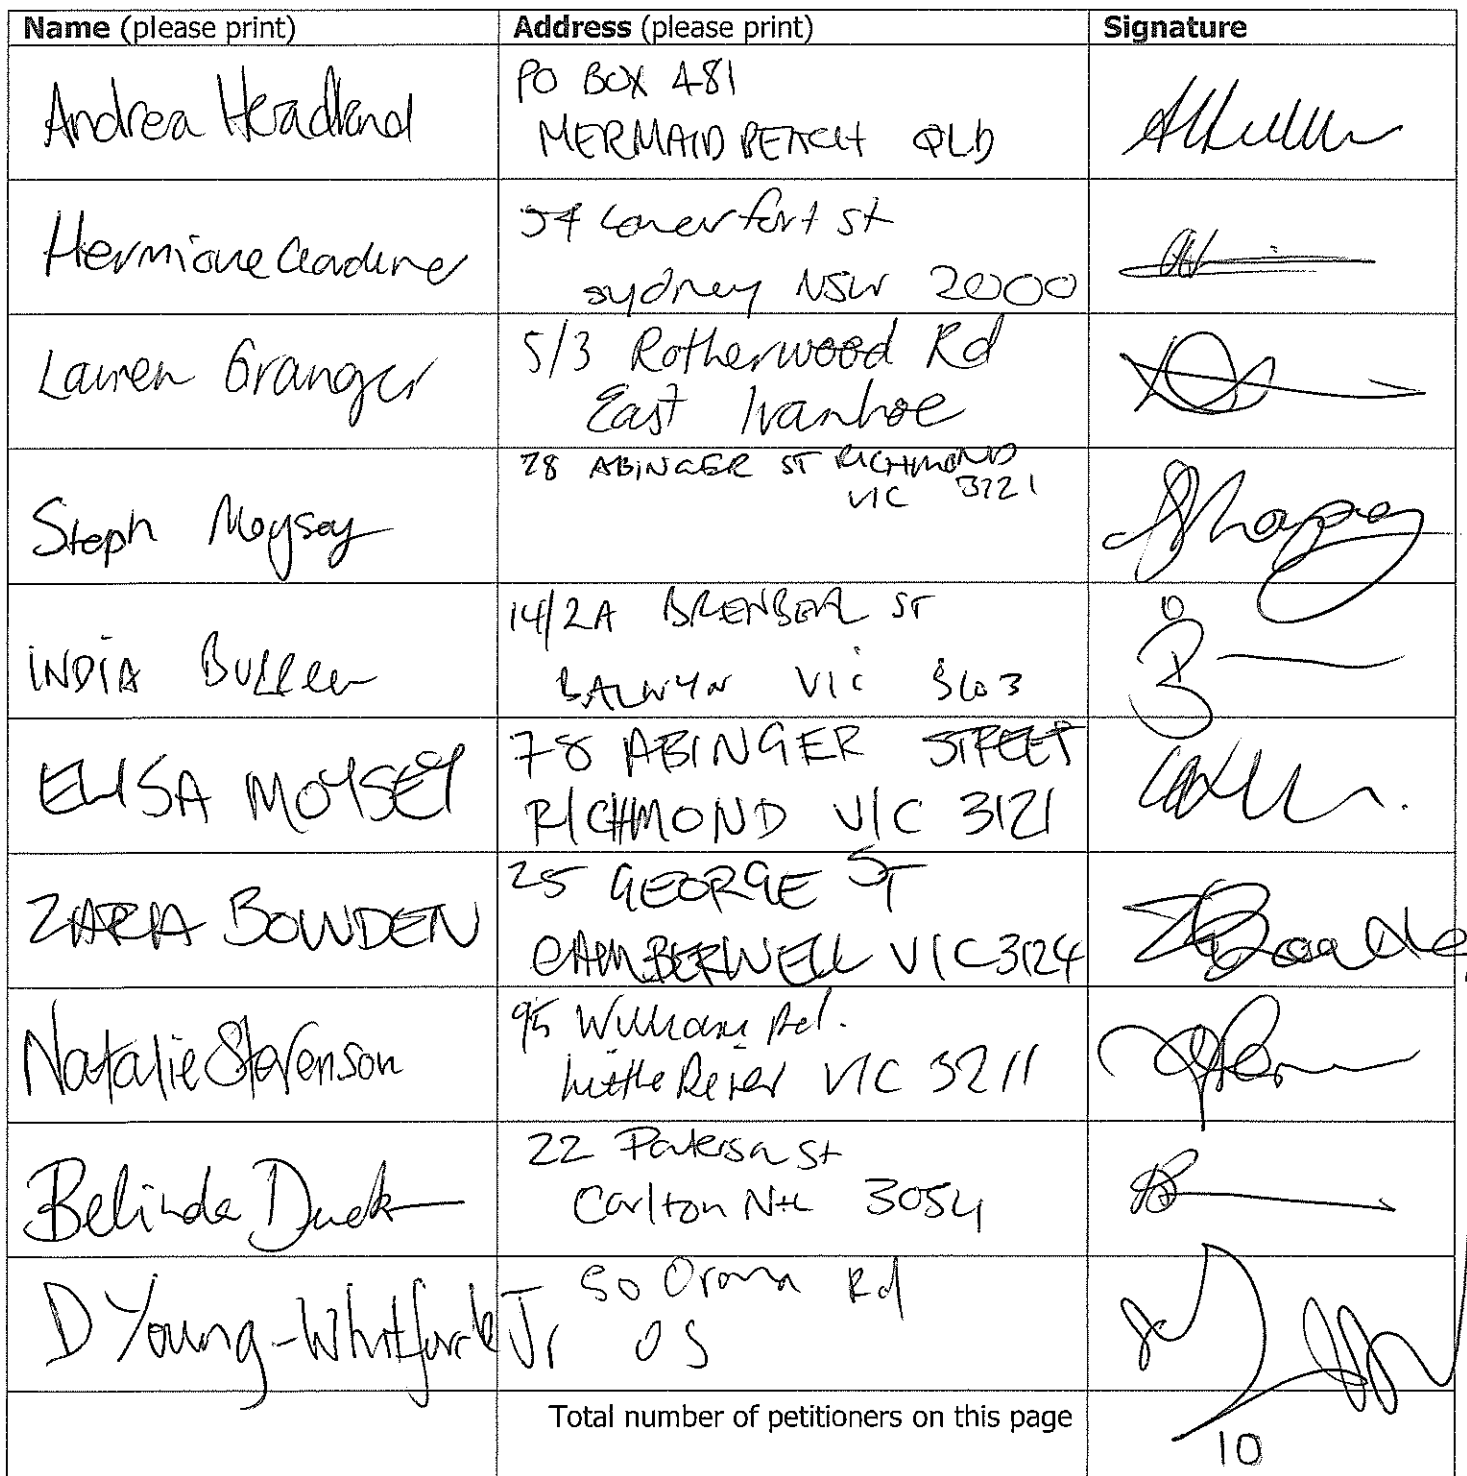 Name (please print) Address (please print) Signature
Andrea Headland
PO BOX 481
MERMAID BEACH QLD
Hermione
54 Lower fort st
sydney NSW 2000
Lauren Granger
5/3 Rotherwood Rd
East Ivanhoe
Steph Moysey
78 ABINGER ST RICHMOND
VIC 3121
INDIA Bullen
14/2A ST
BALWYN VIC 3103
ELISA MOYSEY
78 ABINGER STREET
RICHMOND VIC 3121
ZARA BOWDEN
25 GEORGE ST
CAMBERWELL VIC 3124
Natalie Stevenson
95 William Rd.
Little River VIC 3211
Belinda Duck
22 Paterson St
Carlton Nth 3054
D Young-Whitford Jr
50 Orama Rd
OS
Total number of petitioners on this page
10